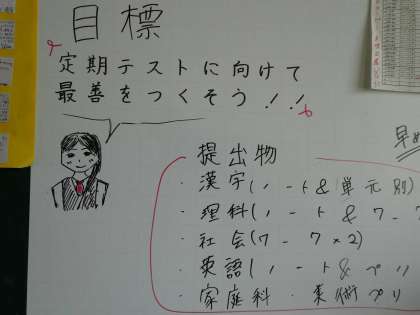 目標
定期テストに向けて
最善をつくそう!!
早め
提出物
・漢字(ノート&単元別)
・理科(ノート&ワーク
・社会(ワーク×2)
・英語(ノート&プリ
・家庭科・美術プリ